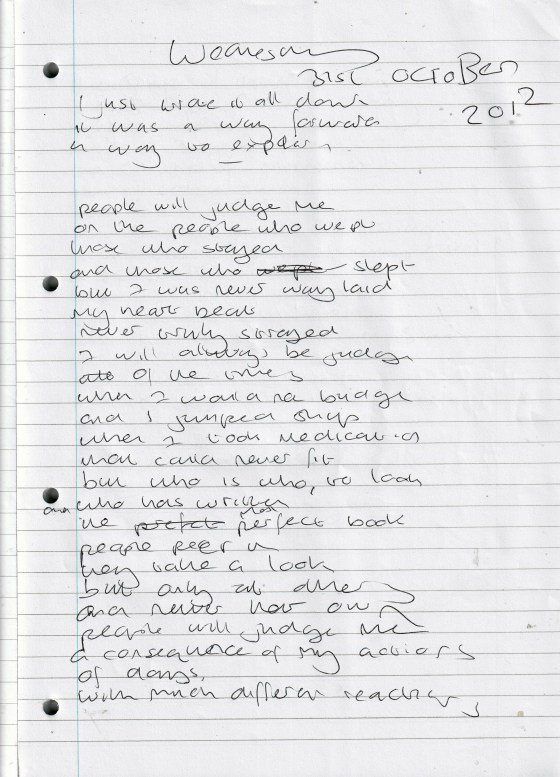 Wednesday
31st OCTOBER
2012
I just wrote it all down
it was a way forward
a way to explain
people will judge me
on the people who wept
those who stayed
and those who wept slept
but I was never way laid
my heart beat
never truly strayed
I will always be judge
of the times
when I would na budge
and I jumped ship
when I took medication
that could never fit
but who is who, to look
and who has written
the prefect most perfect book
people peer in
they take a look
but only at others
and never their own
people will judge me
a consequence of my actions
of days,
with much different reactions